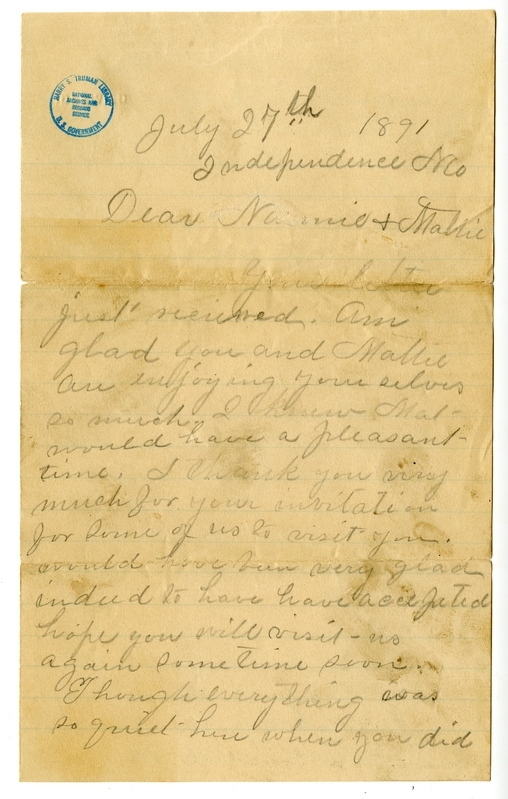 HARRY S. TRUMAN LIBRARY
NATIONAL
ARCHIVES AND
RECORDS
SERVICE
U. S. GOVERNMENT
July 27th 1891
Independence Mo
Dear Nannie & Mattie
Your letter
just recieved. Am
glad you and Mattie
are enjoying your selves
so much, I knew Mat-
would have a pleasant
time. I thank you very
much for your invitation
for some of us to visit you.
would have been very glad
indeed to have have accepted
hope you will visit us
again sometime soon.
Though everything was
so quiet here when you did